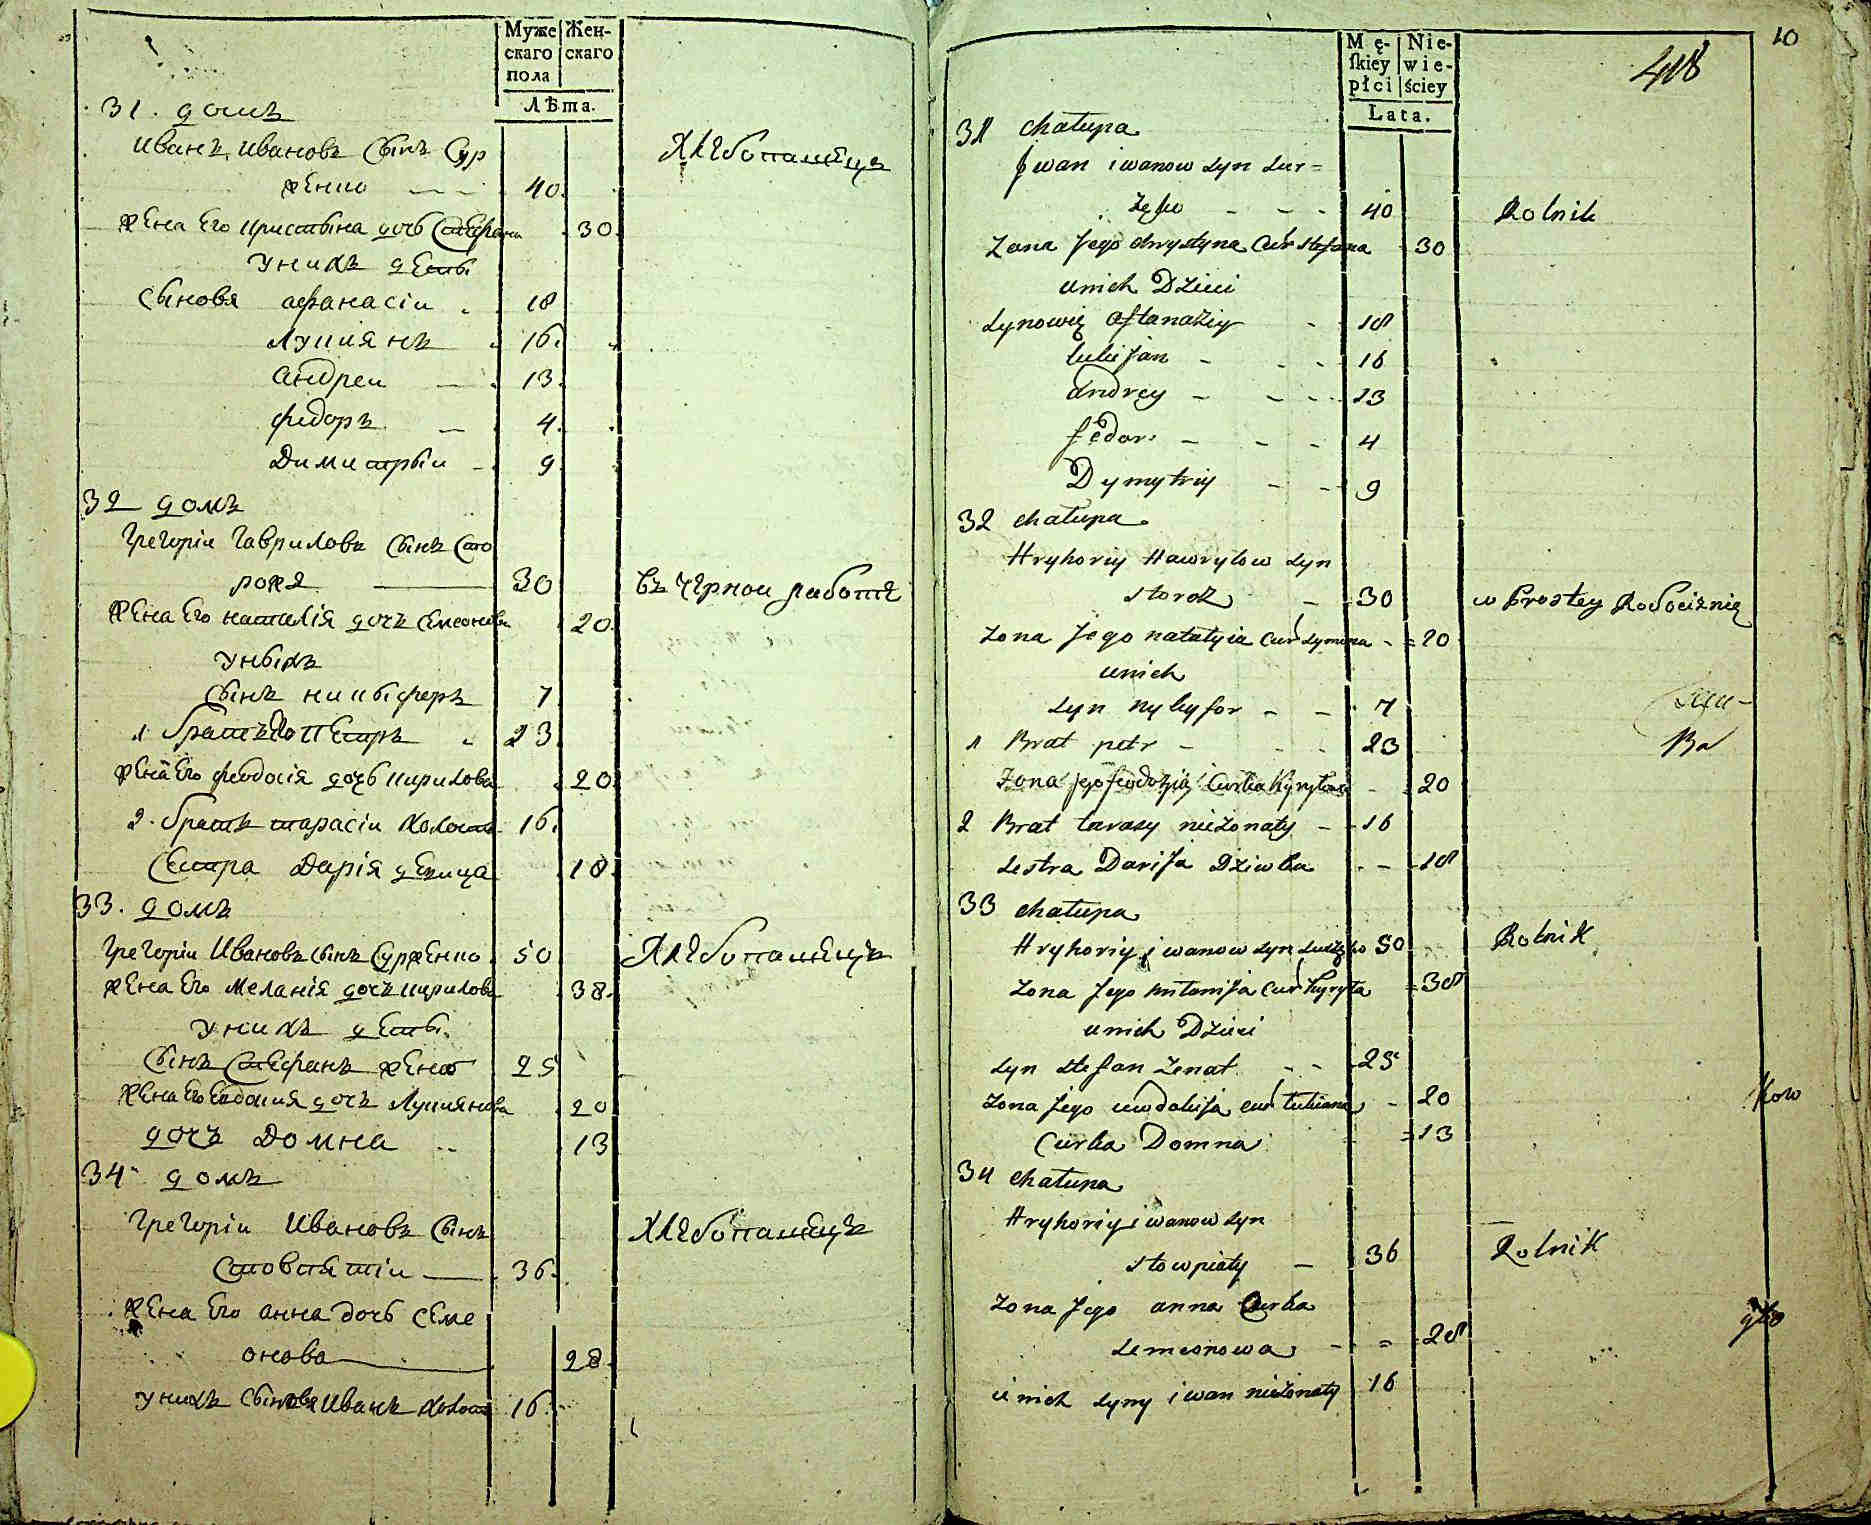 Муже
скаго
пола
Жен-
скаго
Лѣта.
31. домъ
Иванъ Ивановъ сынъ Сур
женко 40
Хлѣбопашецъ
жена его христына дочь Стефана 30
у нихъ дети
сыновя афанасіи 18
Лукиянъ 16.
андреи 13
федоръ 4.
Димитрыи 9
32 домъ
Грегоріи Гавриловъ сынъ Сто
рожа 30
въ чернои работе
жена его наталія дочъ Симеонова 20
у ныхъ
сынъ никыферъ 7
1 братъ его Петръ 23
жена его феодосія дочь кирилова 20
2. братъ тарасіи холостъ 16.
Сестра Дарія девица 18
33. домъ
Грегоріи Ивановъ сынъ Сурженко 50
Хлѣбопашецъ
жена его Меланія дочъ кирилова 38
у нихъ дети.
сынъ Стефанъ женатъ 25
жена его евдокия дочъ Лукиянова 20
дочъ Домна 13
34 домъ
Грегоріи Ивановъ сынъ
Стовпятіи 36.
Хлѣбопашецъ
жена его анна дочь Семе
онова 28
у нихъ сыновя Иванъ холостъ 16.
10
418
Mę-
ſkiey
płci
Nie-
wie-
ściey
Lata.
31 chatupa
Jwan iwanow syn Sur=
zęko 40
Rolnik
zona Jego chrystyna Curk stefana 30
unich Dzieci
synowie aftanaziy 18
lukiJan 16
andrey 13
fedor 4
Dymytriy 9
32 chatupa
Hryhoriy Hawrylow syn
storoz 30
w Prostey Robociznie
zona Jego natalyia Cur symona 20
unich
syn nykyfor 7
1 Brat petr 23
zona jego feodoziia Curka kyrylowa 20
2 Brat tarasy niezonaty 16
sestra DariJa Dziwka 18
33 chatupa
Hryhoriy iwanow syn 50
Rolnik
zona Jego Cur kyryla 38
unich Dzieci
syn stefan zonat 25
zona Jego ewdokiJa cur lukiana 20
Curka Domna 13
34 chatupa
Hryhoriy iwanow syn
stowpiaty 36
Rolnik
zona Jego anna Curka
semeonowa 28
u nich syny iwan niezonaty 16